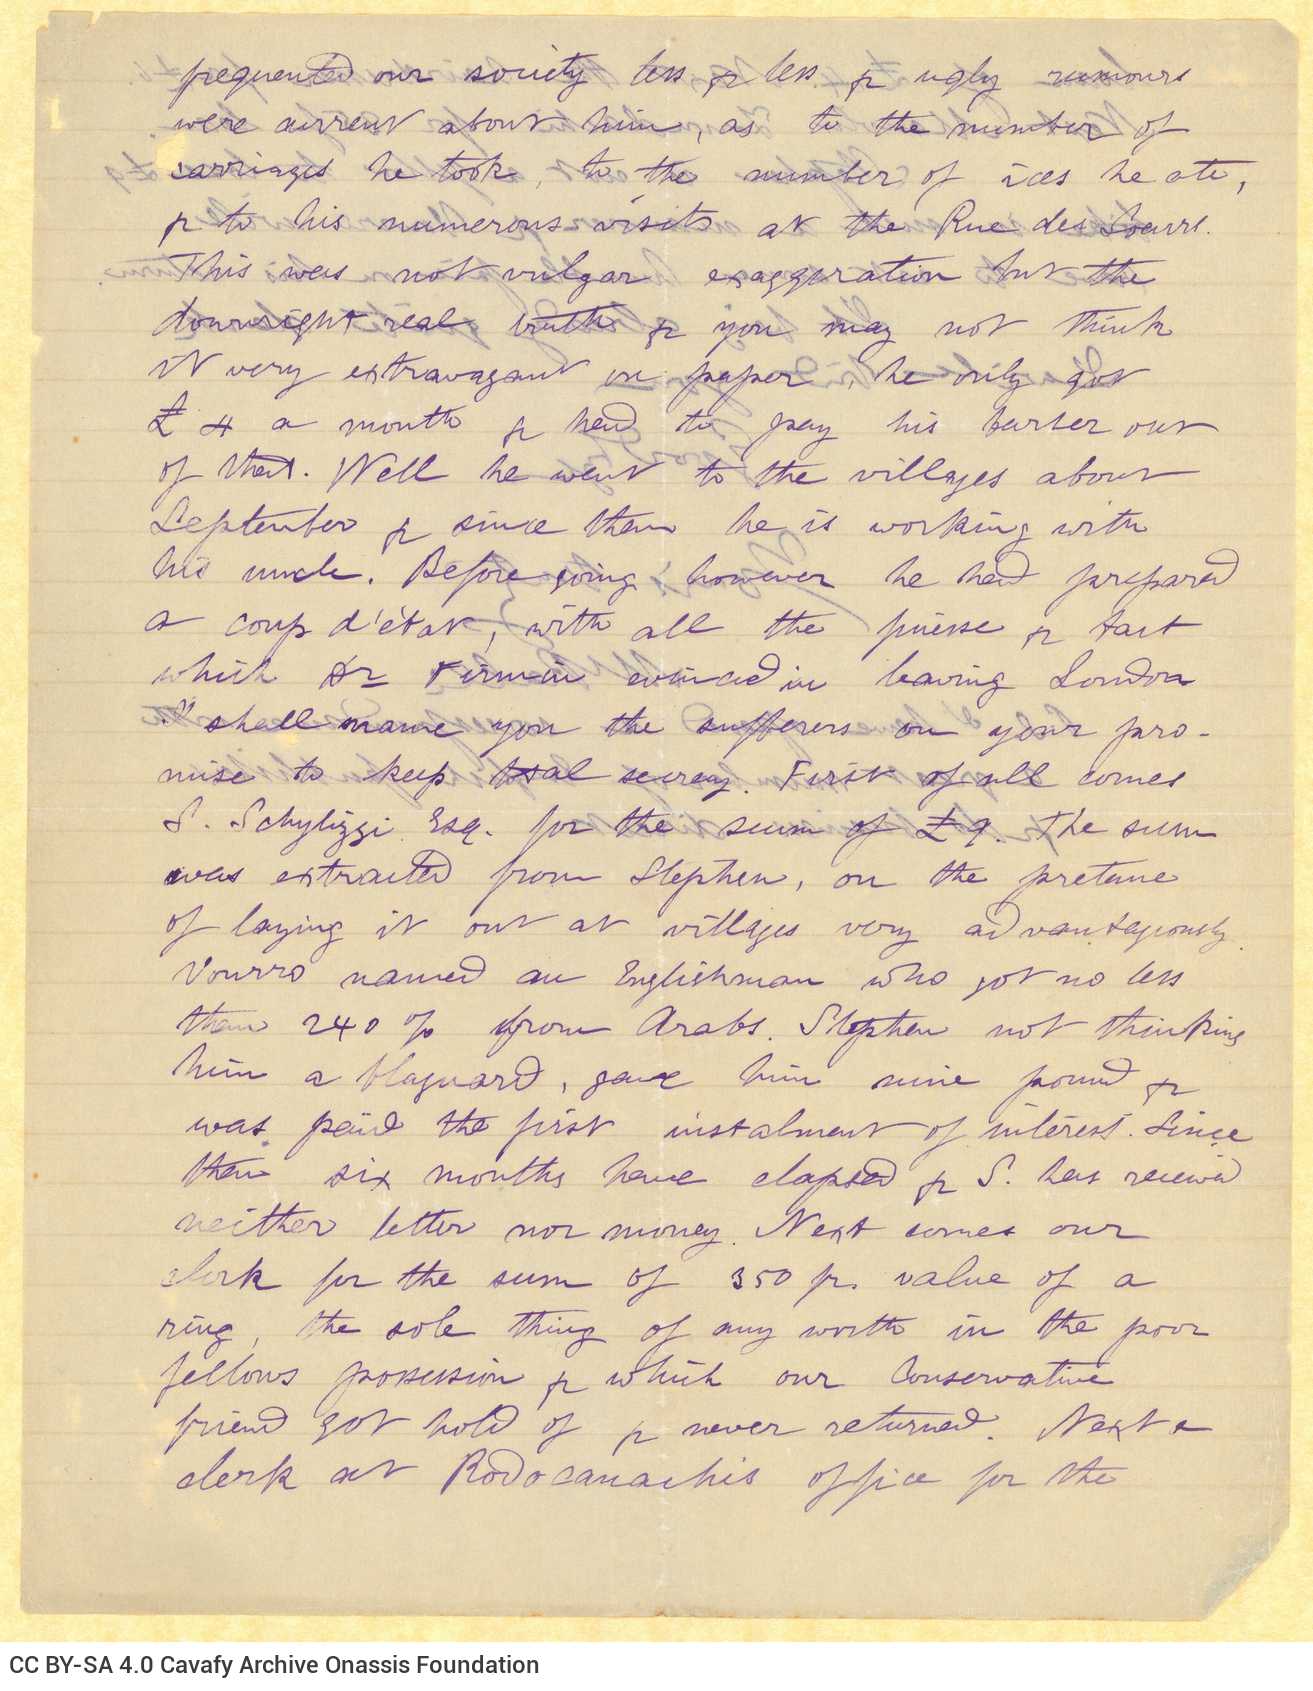 frequented our society less & less & ugly rumours
were current about him, as to the number of
carriages he took, to the number of ices he ate,
& to his numerous visits at the Rue des Soeurs.
This was not vulgar exaggeration but the
downright real truth & you may not think
it very extravagant on paper, he only got
£ 4 a month & had to pay his barber out
of that. Well he went to the villages about
September & since then he is working with
his uncle. Before going however he had prepared
a coup d'état, with all the finesse & tact
which Dr Firmin evinced in leaving London
I shall name you the sufferers on your pro-
mise to keep total secrecy. First of all comes
S. Schylizzi Esq. for the sum of £ 9. The sum
was extracted from Stephen, on the pretence
of laying it out at villages very advantageously.
Vourro named an Englishman who got no less
than 240 % from Arabs. Stephen not thinking
him a blaguard, gave him nine pound &
was paid the first instalment of interest. Since
then six months have elapsed & S. has received
neither letter nor money. Next comes our
clerk for the sum of 350 fr. value of a
ring, the sole thing of any worth in the poor
fellows possession & which our Conservative
friend got hold of & never returned. Next a
clerk at Rodocanachis office for the
CC BY-SA 4.0 Cavafy Archive Onassis Foundation